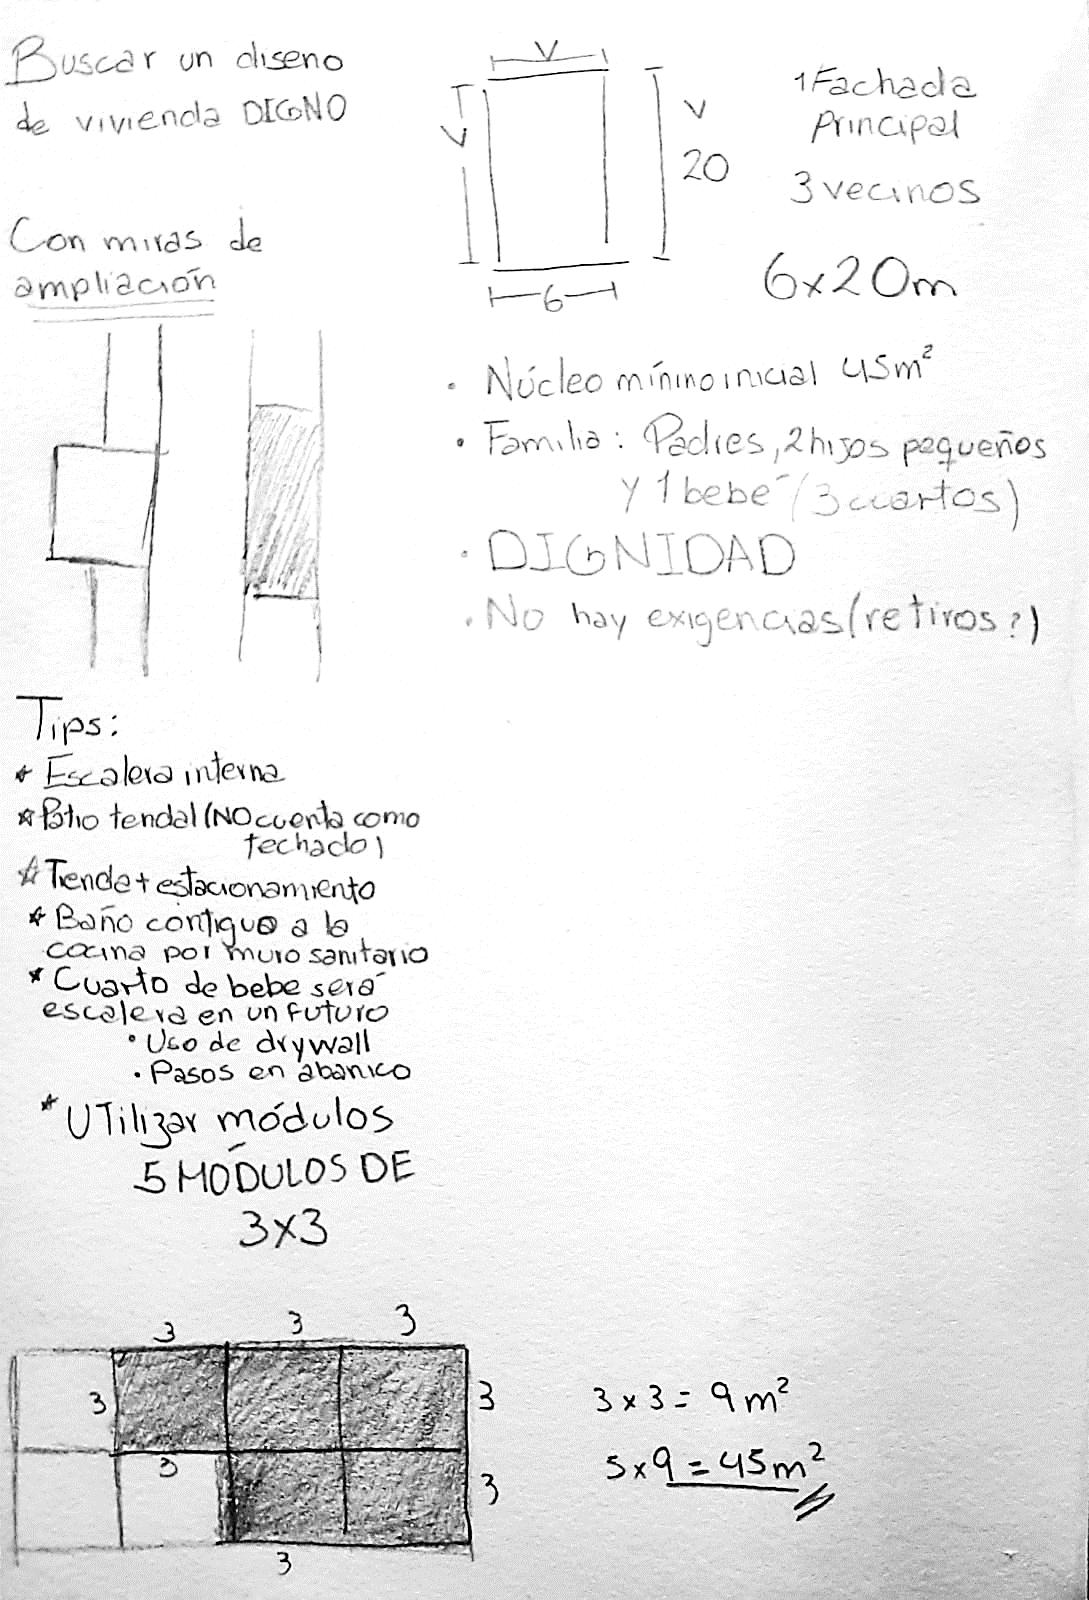 Buscar un diseno
de vivienda DIGNO
Con miras de
ampliación
V
V
V
20
6
1 Fachada
Principal
3 vecinos
6x20m
· Núcleo mínino inicial 45m²
· Familia: Padres, 2 hijos pequeños
y 1 bebé (3 cuartos)
· DIGNIDAD
· No hay exigencias (retiros?)
Tips:
* Escalera interna
* Patio tendal (NO cuenta como
techado)
* Tienda + estacionamiento
* Baño contiguo a la
cocina por muro sanitario
* Cuarto de bebe será
escalera en un futuro
· Uso de drywall
· Pasos en abanico
* UTilizar módulos
5 MÓDULOS DE
3x3
3 3 3
3 3
3 3
3
3x3 = 9m²
5x9 = 45m²